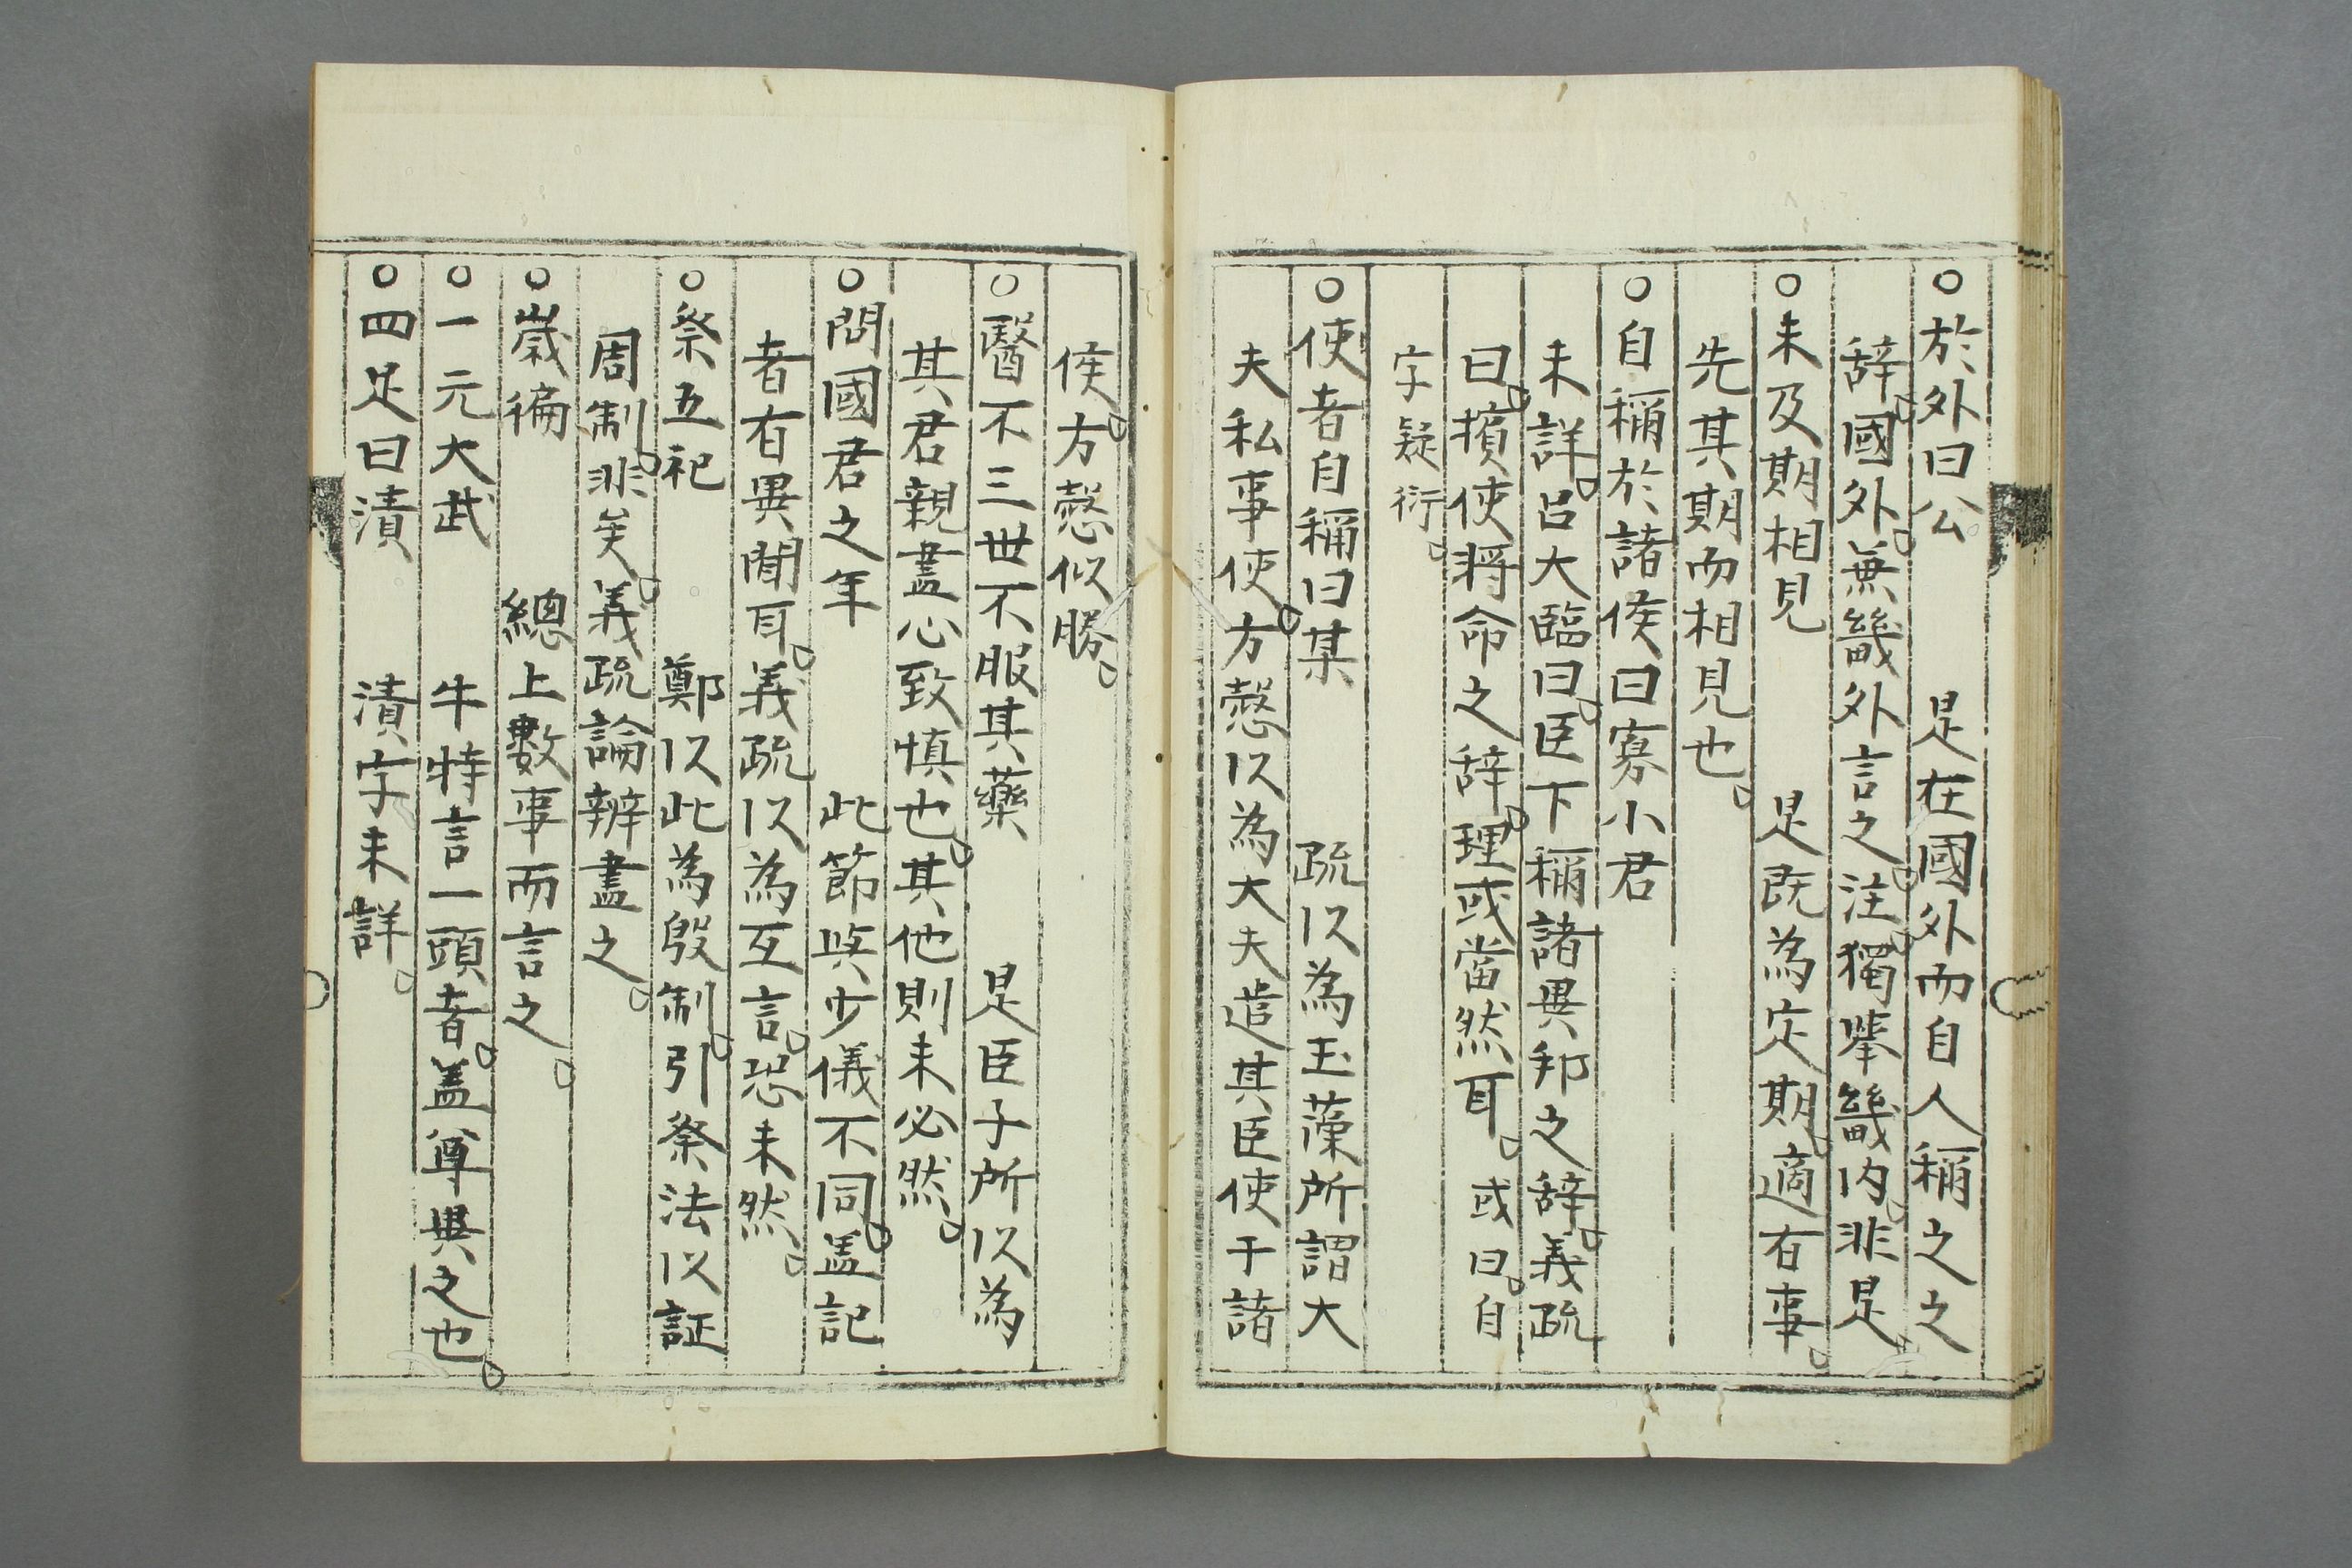 ○於外曰公　是在國外而自人稱之之
辞。國外。無畿外言之。注。獨舉畿内。非是。
○未及期相見　是既為定期。適有事。
先其期而相見也。
○自稱於諸侯曰寡小君
未詳。呂大臨曰。臣下稱諸異邦之辞。義疏
曰。擯使将命之辞。理或當然耳。或曰。自
字疑衍。
○使者自稱曰某　疏以為玉藻所謂大
夫私事使。方慤以為大夫遣其臣使于諸
侯。方慤似勝。
○醫不三世不服其藥　是臣子所以為
其君親盡心致慎也。其他則未必然。
○問國君之年　此節與少儀不同。盖記
者有異聞耳。義疏以為互言。恐未然。
○祭五祀　鄭以此為殷制。引祭法以証
周制。非矣。義疏論辨盡之。
○歲徧　總上數事而言之。
○一元大武　牛特言一頭者。盖尊異之也。
○四足曰漬　漬字未詳。